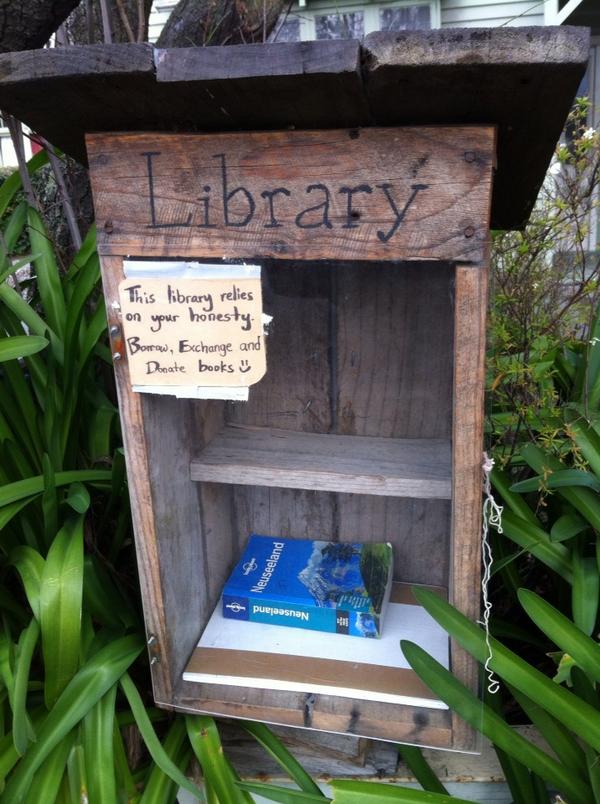 Library
This library relies
on your honesty.
Borrow, Exchange and
Donate books
Neuseeland
Neuseeland